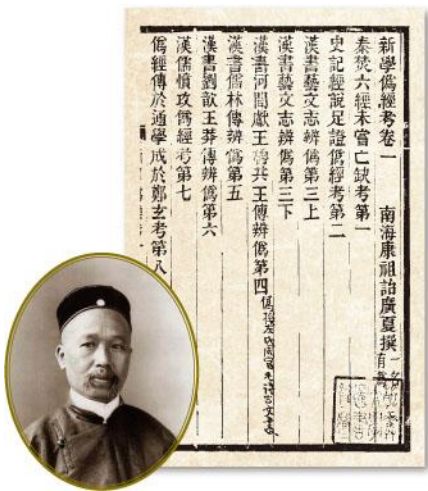 新學僞經考卷一 南海康祖詒廣夏撰
秦焚六經未嘗亡缺考第一
史記經說足證僞經考第二
漢書藝文志辨僞第三上
漢書藝文志辨僞第三下
漢書河間獻王魯共王傳辨僞第四
漢書儒林傳辨僞第五
漢書劉歆王莽傳辨僞第六
漢儒憤攻僞經考第七
僞經傳於通學成於鄭玄考第八